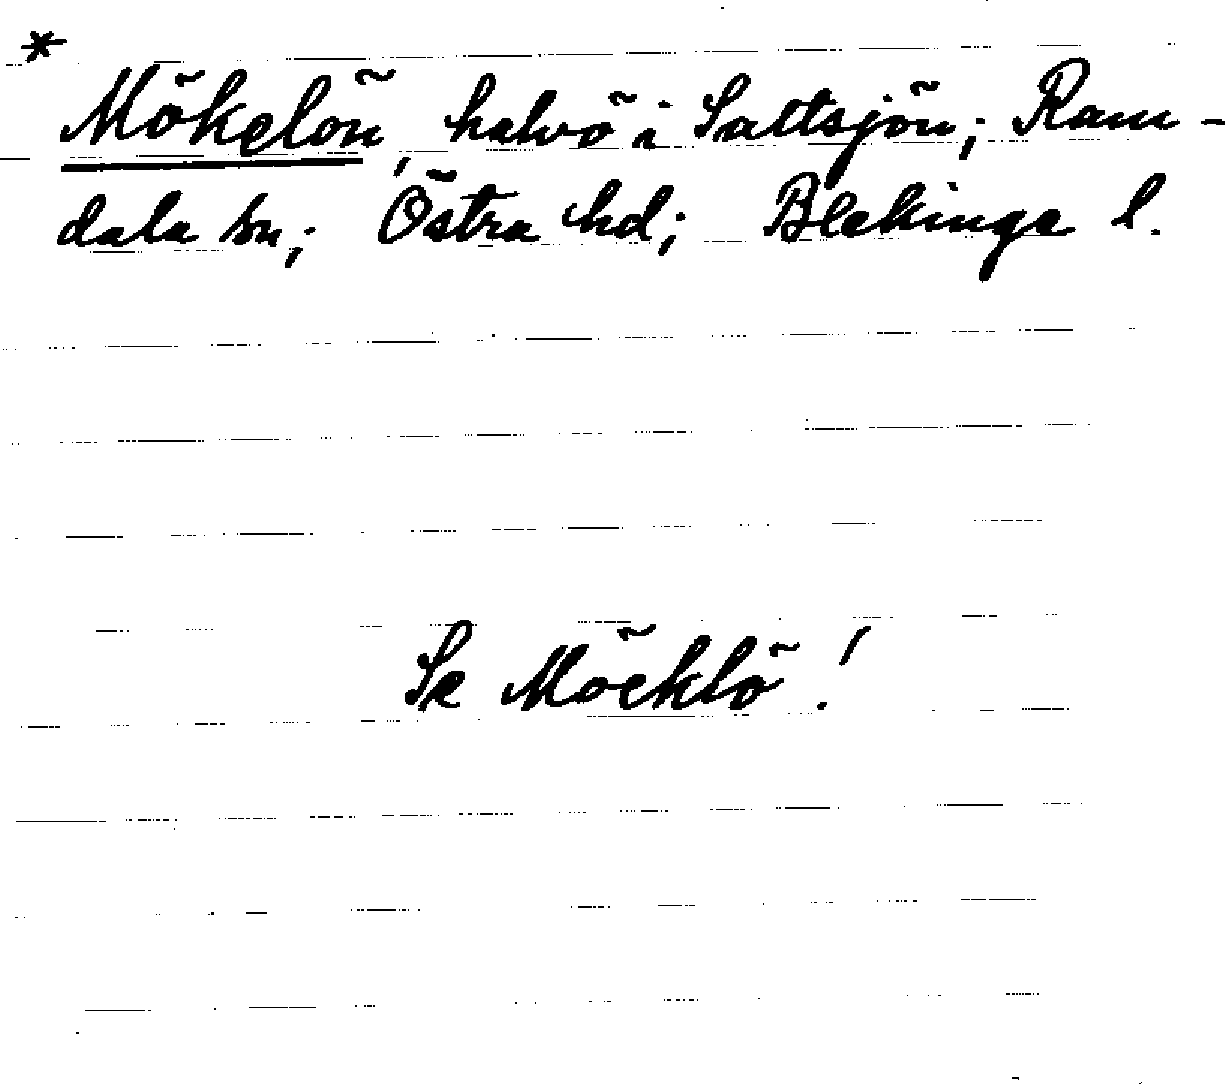 * Mökelön, halvö i Saltsjön; Ram-
dala sn; Östra hd; Blekinge l.
Se Möcklö!